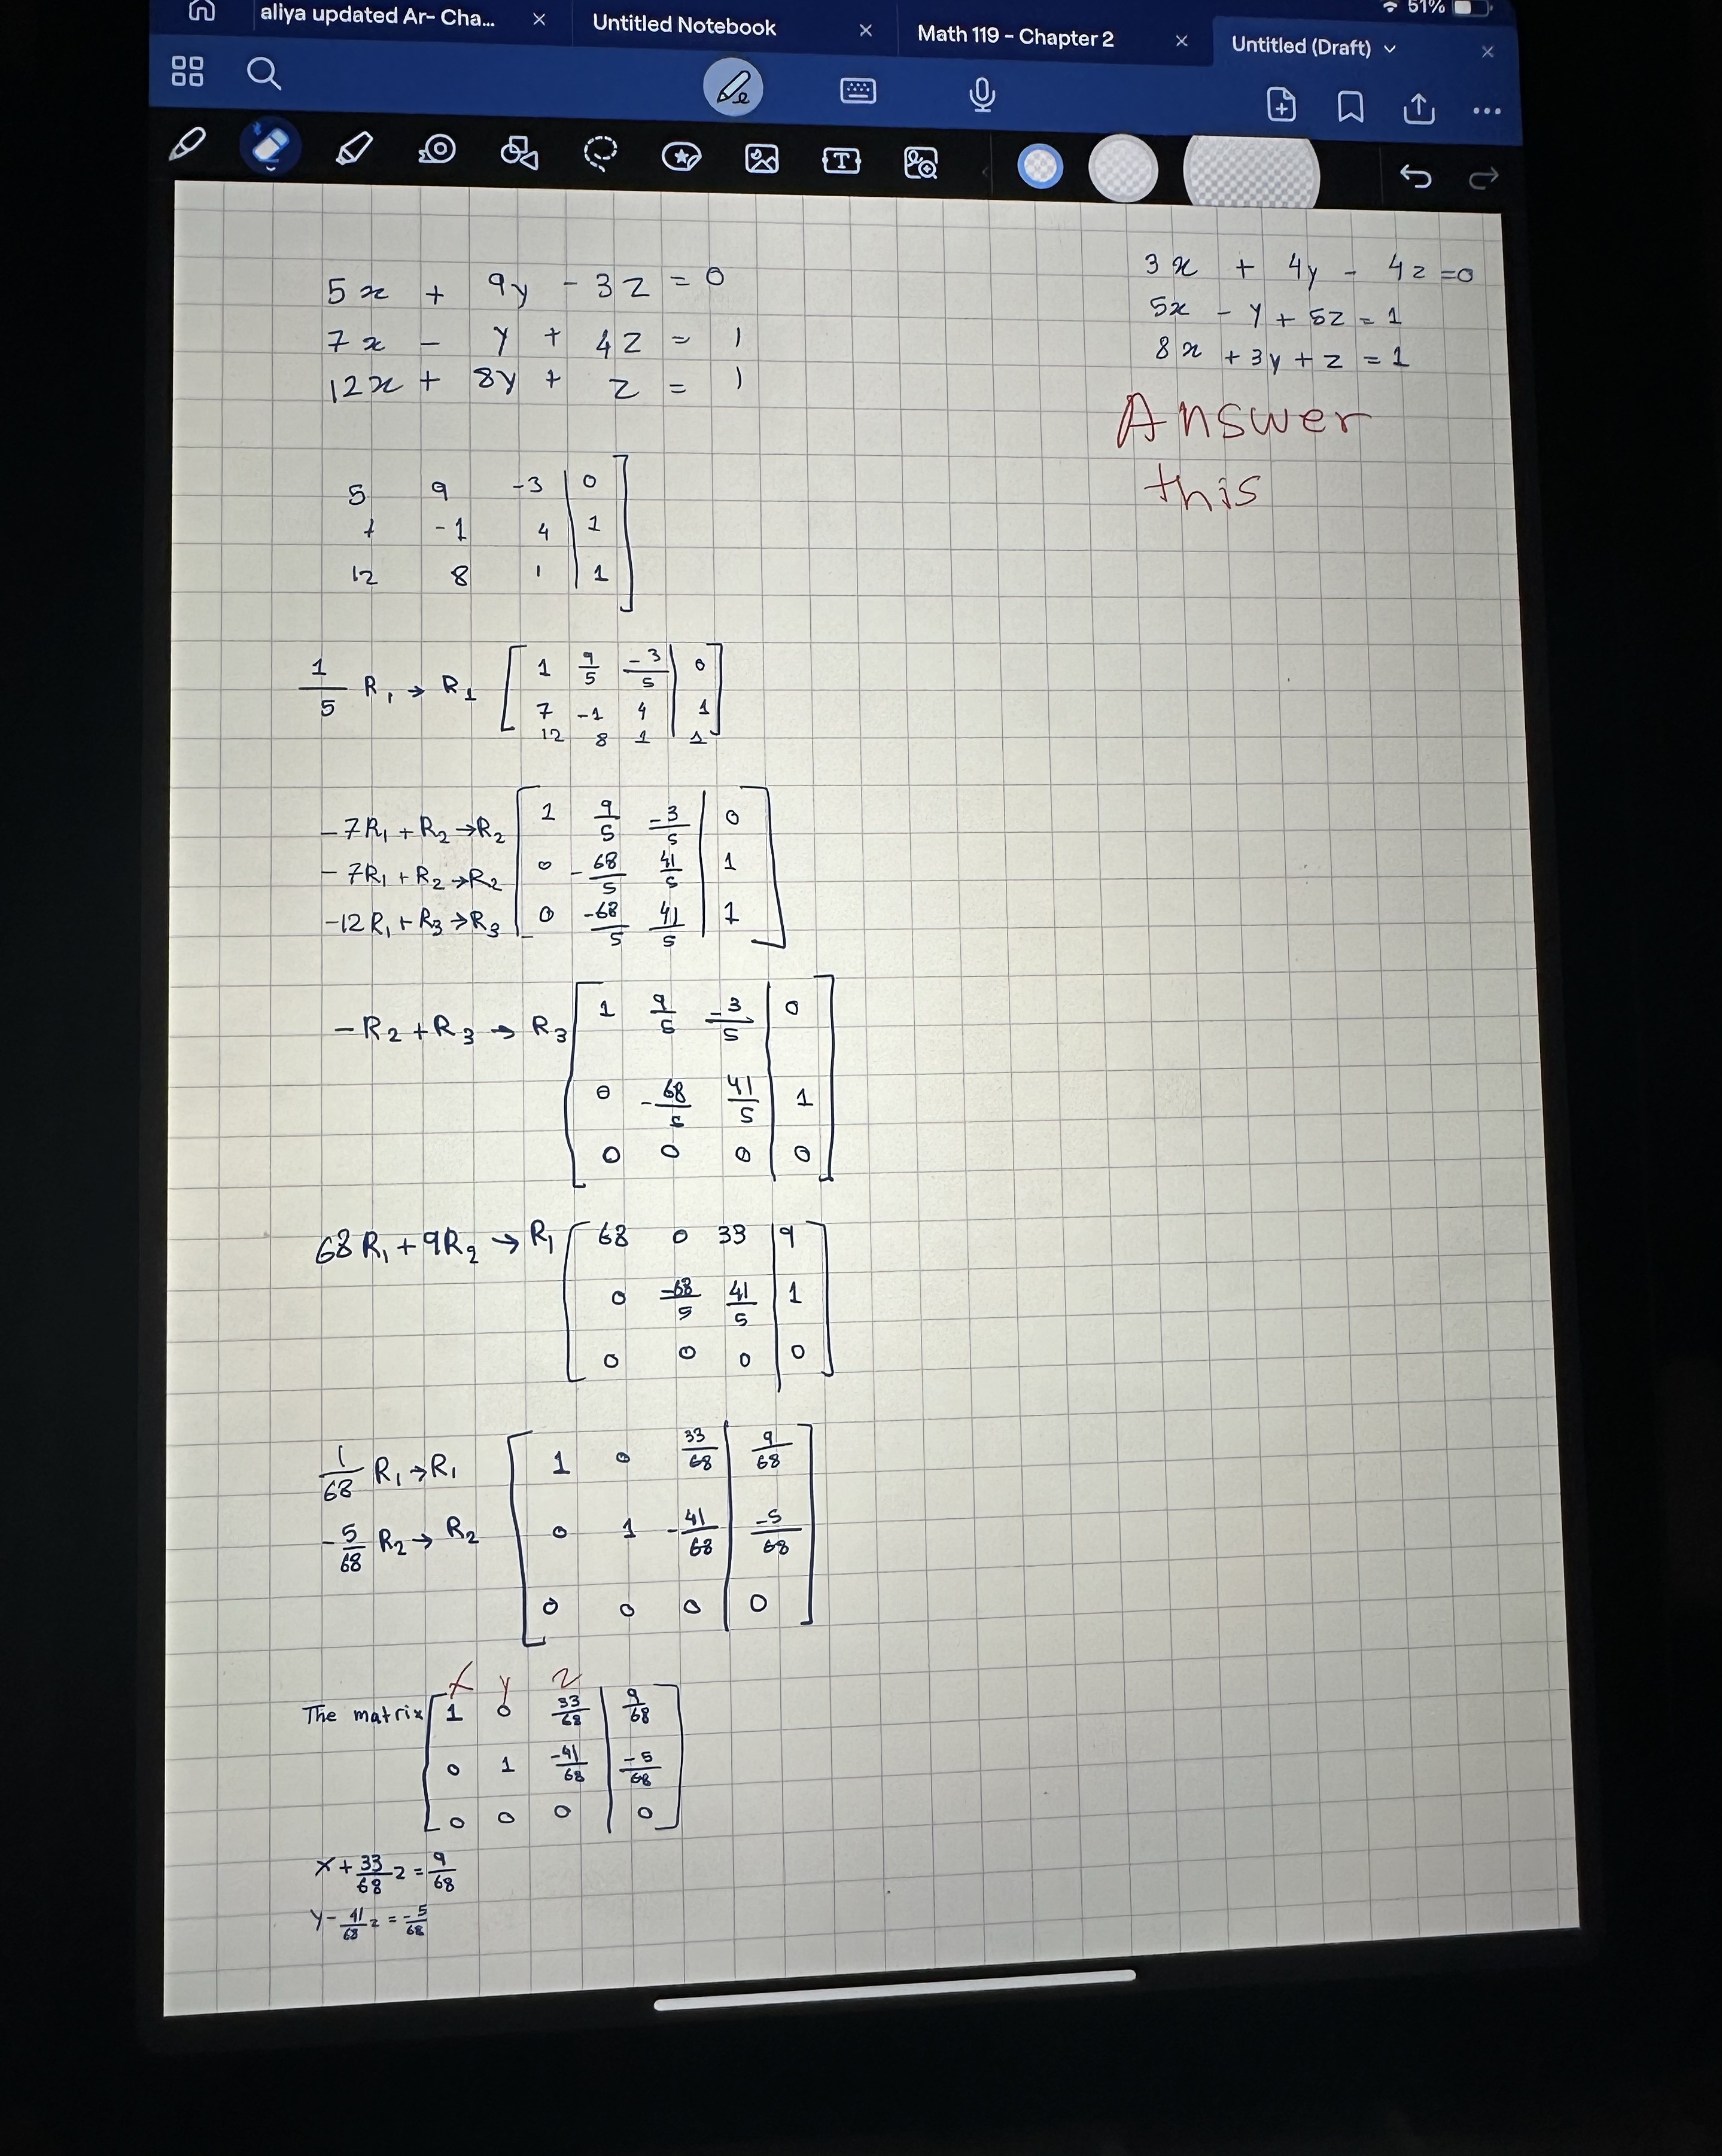 51%
aliya updated Ar- Cha... × Untitled Notebook × Math 119 - Chapter 2 × Untitled (Draft) ×
T
5x + 9y - 3z = 0
7x - y + 4z = 1
12x + 8y + z = 1
3x + 4y - 4z = 0
5x - y + 5z = 1
8x + 3y + z = 1
Answer
this
5 9 -3 | 0 ]
7 -1 4 | 1
12 8 1 | 1
1/5 R1 → R1 [ 1 9/5 -3/5 | 0 ]
7 -1 4 | 1
12 8 1 1
-7R1 + R2 → R2 [ 1 9/5 -3/5 | 0 ]
-7R1 + R2 → R2 0 -68/5 41/5 | 1
-12R1 + R3 → R3 0 -68/5 41/5 | 1
-R2 + R3 → R3 [ 1 9/5 -3/5 | 0 ]
0 -68/5 41/5 | 1
0 0 0 | 0
68R1 + 9R2 → R1 [ 68 0 33 | 9 ]
0 -68/5 41/5 | 1
0 0 0 | 0
1/68 R1 → R1 [ 1 0 33/68 | 9/68 ]
-5/68 R2 → R2 0 1 -41/68 | -5/68
0 0 0 | 0
x y z
The matrix [ 1 0 33/68 | 9/68 ]
0 1 -41/68 | -5/68
0 0 0 | 0
x + 33/68 z = 9/68
y - 41/68 z = -5/68